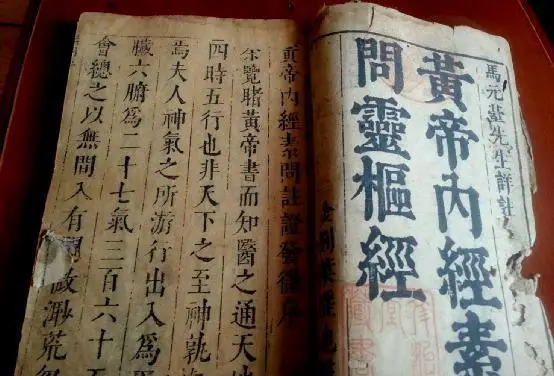 馬元臺先生詳註
黃帝內經素
問靈樞經
黃帝內經素問註證發微序
余覽睹黃帝書而知醫之通天地
四時五行也非天下之至神孰
焉夫人神氣之所游行出入爲
臟六腑爲二十七氣三百六十五
會總之以無間入有間微渺荒